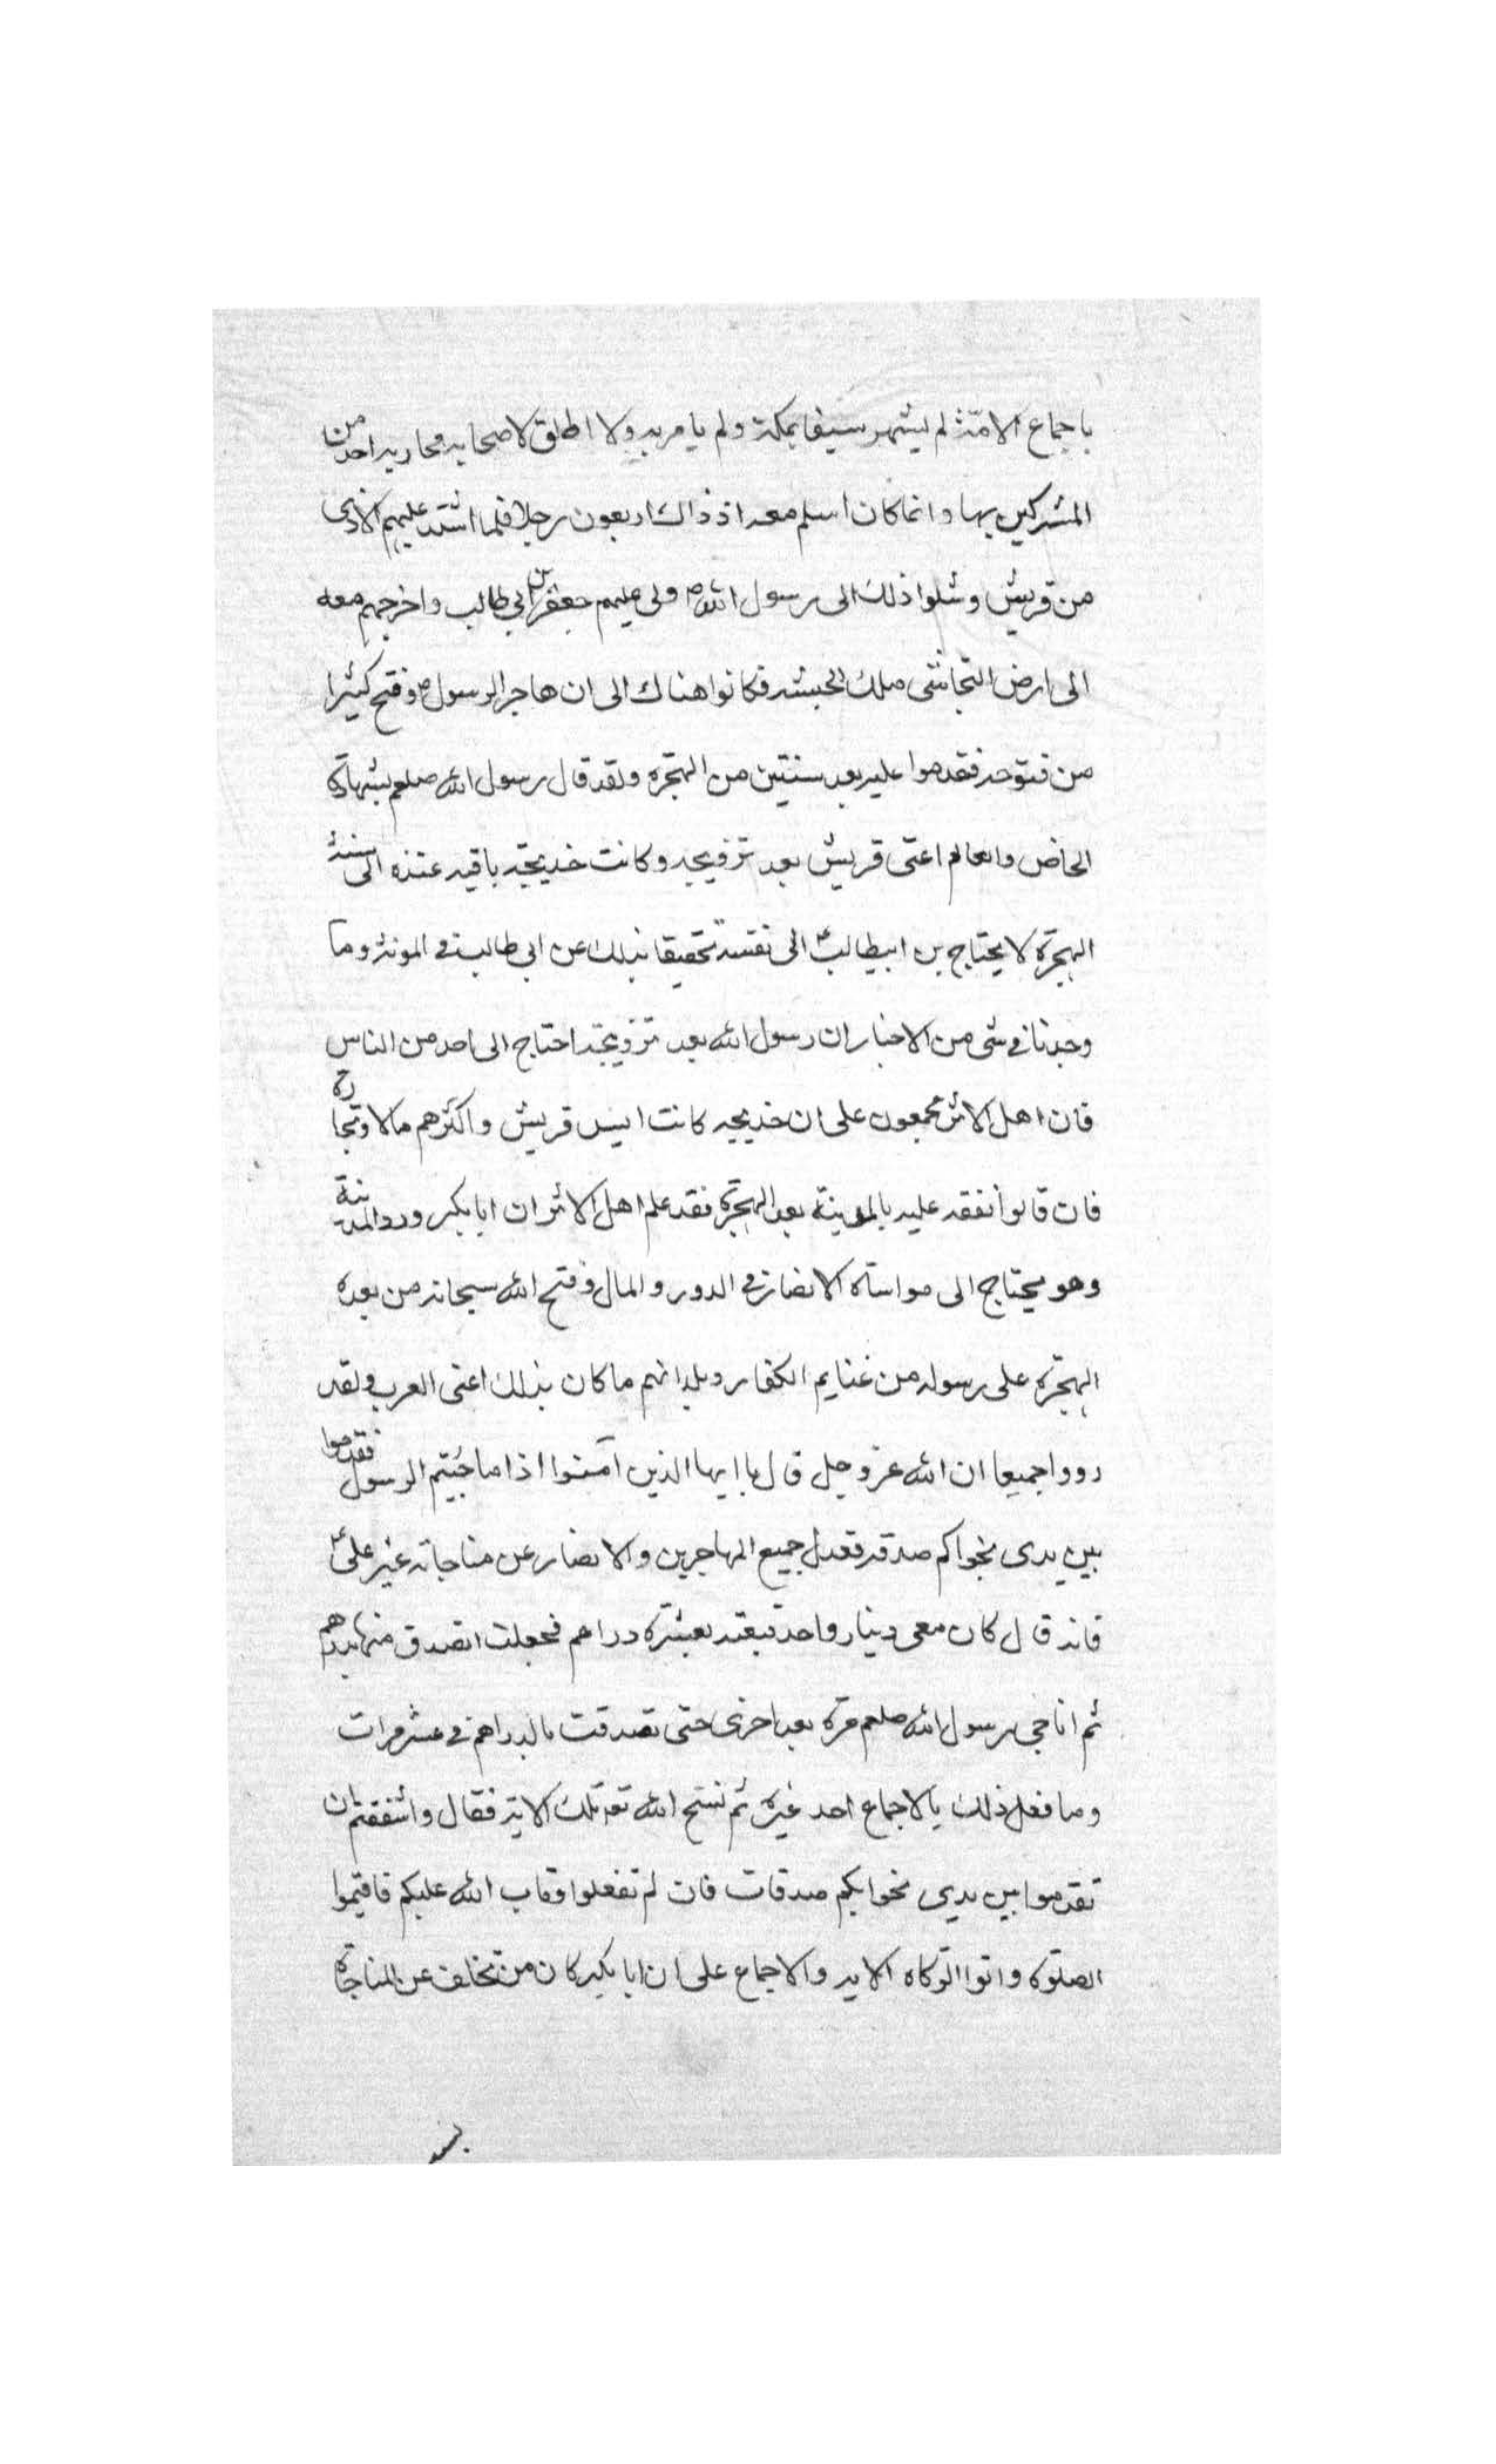 باجماع الامة لم يشهر سيفا بمكة ولم يامر به ولا اطلق لاصحابه محاربة احد من
المشركين بها وانما كان اسلم معه اذ ذاك اربعون رجلا فلما اشتد عليهم الاذى
من قريش وشكوا ذلك الى رسول الله ص ولى عليهم جعفر بن ابي طالب واخرجهم معه
الى ارض النجاشى ملك الحبشه فكانوا هناك الى ان هاجر الرسول ص وفتح كثيرا
من فتوحه فقدموا عليه بعد سنتين من الهجره ولقد قال رسول الله صلعم بشهادة
الخاص والعام اغنى قريش بعد تزويجه وكانت خديجة باقيه عنده الى سنة
الهجرة لا يحتاج بن ابيطالب الى نفسه تحقيقا بذلك عن ابي طالب في المونة وما
وجدنا في شى من الاخبار ان رسول الله بعد تزويجه احتاج الى احد من الناس
فان اهل الاثر مجمعون على ان خديجه كانت ايسر قريش واكثرهم مالا وتجارة
فان قالوا نفقه عليه بالمدينة بعد الهجرة فقد علم اهل الاثر ان ابا بكر ورد المدينة
وهو محتاج الى مواساة الانصار في الدور والمال وفتح الله سبحانه من بعده
الهجرة على رسوله من غنايم الكفار وبلدانهم ما كان بذلك اغنى العرب ولقد
رووا جميعا ان الله عز وجل قال يا ايها الذين آمنوا اذا ما جيتم الرسول فقدموا
بين يدى نجواكم صدقه فعدل جميع المهاجرين والانصار عن مناجاته غير على ع
فانه قال كان معى دينار واحد فبعته بعشرة دراهم فجعلت اتصدق منها بدرهم
ثم اناجى رسول الله صلعم مرة بعد اخرى حتى تصدقت بالدراهم في عشر مرات
وما فعل ذلك بالاجماع احد غيره ثم نسخ الله تع تلك الاية فقال واشفقتم ان
تقدموا بين يدي نجوايكم صدقات فان لم تفعلوا وتاب الله عليكم فاقيموا
الصلوة واتوا الزكاه الايه والاجماع على ان ابا بكر كان من تخلف عن المناجاة